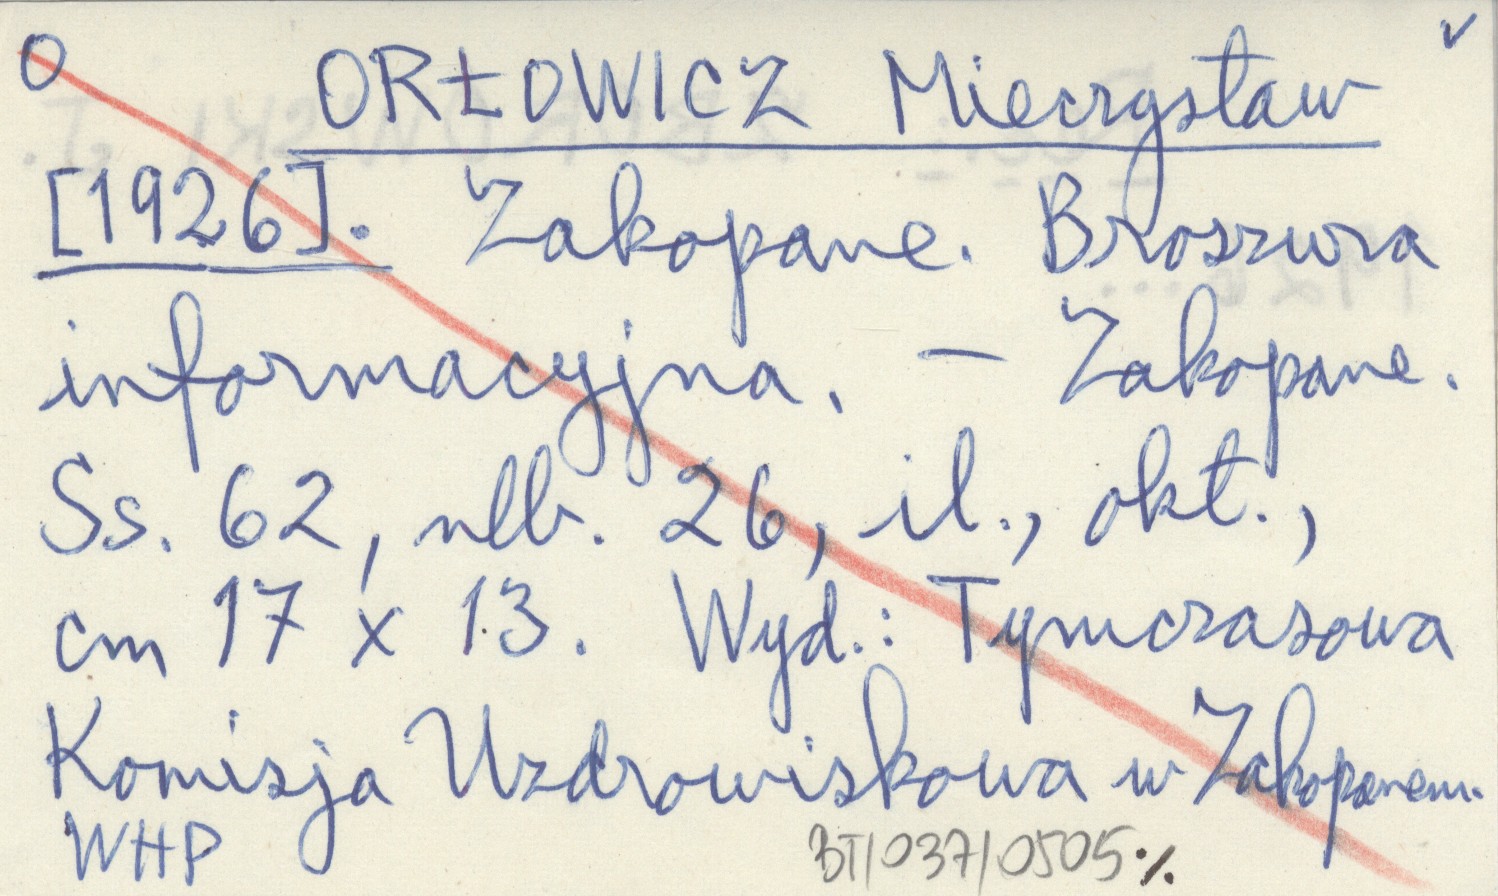 O ORŁOWICZ Mieczysław v
[1926]. Zakopane. Broszura
informacyjna. — Zakopane.
Ss. 62, nlb. 26, il., okł.,
cm 17 x 13. Wyd.: Tymczasowa
Komisja Uzdrowiskowa w Zakopanem.
WHP BT/037/0505 ./.